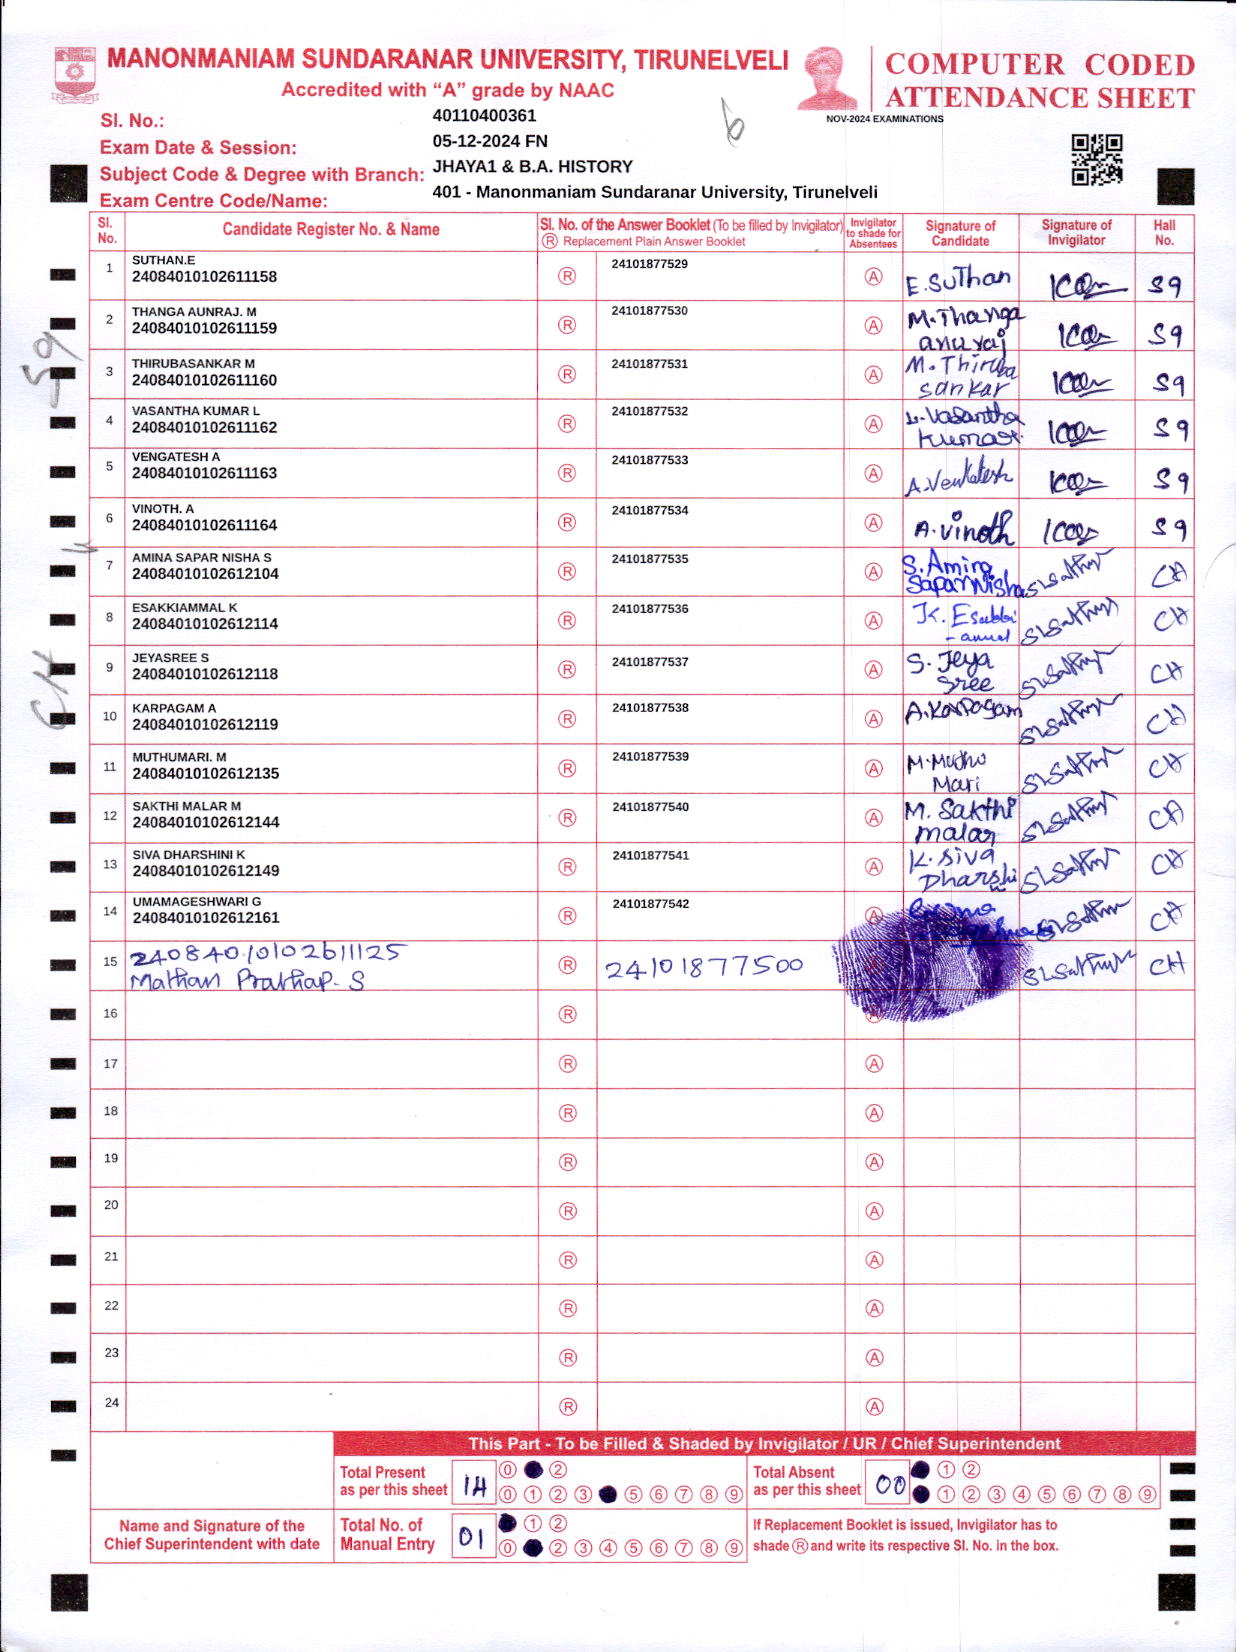 MANONMANIAM SUNDARANAR UNIVERSITY, TIRUNELVELI
Accredited with “A” grade by NAAC
COMPUTER CODED
ATTENDANCE SHEET
NOV-2024 EXAMINATIONS
6
Sl. No.: 40110400361
Exam Date & Session: 05-12-2024 FN
Subject Code & Degree with Branch: JHAYA1 & B.A. HISTORY
Exam Centre Code/Name: 401 - Manonmaniam Sundaranar University, Tirunelveli
Sl. No. Candidate Register No. & Name Sl. No. of the Answer Booklet (To be filled by Invigilator) Ⓡ Replacement Plain Answer Booklet Invigilator to shade for Absentees Signature of Candidate Signature of Invigilator Hall No.
1 SUTHAN.E 24101877529
24084010102611158 Ⓡ Ⓐ E.SuThan S9
2 THANGA AUNRAJ. M 24101877530 M.Thanga
24084010102611159 Ⓡ Ⓐ anuraj S9
3 THIRUBASANKAR M 24101877531 M.Thiruba
24084010102611160 Ⓡ Ⓐ sankar S9
4 VASANTHA KUMAR L 24101877532 L.Vasantha
24084010102611162 Ⓡ Ⓐ kumar. S9
5 VENGATESH A 24101877533
24084010102611163 Ⓡ Ⓐ A.Venkatesh S9
6 VINOTH. A 24101877534
24084010102611164 Ⓡ Ⓐ A.Vinoth S9
7 AMINA SAPAR NISHA S 24101877535 S.Amina
24084010102612104 Ⓡ Ⓐ SaparNisha CH
8 ESAKKIAMMAL K 24101877536 K. Esakki
24084010102612114 Ⓡ Ⓐ -ammal CH
9 JEYASREE S 24101877537 S. Jeya
24084010102612118 Ⓡ Ⓐ Sree CH
10 KARPAGAM A 24101877538 A.Karpagam
24084010102612119 Ⓡ Ⓐ CH
11 MUTHUMARI. M 24101877539 M.Muthu
24084010102612135 Ⓡ Ⓐ Mari CH
12 SAKTHI MALAR M 24101877540 M. Sakthi
24084010102612144 Ⓡ Ⓐ malar CH
13 SIVA DHARSHINI K 24101877541 K. Siva
24084010102612149 Ⓡ Ⓐ CH
14 UMAMAGESHWARI G 24101877542
24084010102612161 Ⓡ Ⓐ CH
15 24084010102611125
Mathan Prathap. S Ⓡ 24101877500 CH
16 Ⓡ Ⓐ
17 Ⓡ Ⓐ
18 Ⓡ Ⓐ
19 Ⓡ Ⓐ
20 Ⓡ Ⓐ
21 Ⓡ Ⓐ
22 Ⓡ Ⓐ
23 Ⓡ Ⓐ
24 Ⓡ Ⓐ
S9
CH
This Part - To be Filled & Shaded by Invigilator / UR / Chief Superintendent
Total Present 0 2
as per this sheet 14 0 1 2 3 5 6 7 8 9
Total Absent 1 2
as per this sheet 00 1 2 3 4 5 6 7 8 9
Name and Signature of the
Chief Superintendent with date
Total No. of 1 2
Manual Entry 01 0 2 3 4 5 6 7 8 9
If Replacement Booklet is issued, Invigilator has to
shade Ⓡ and write its respective Sl. No. in the box.